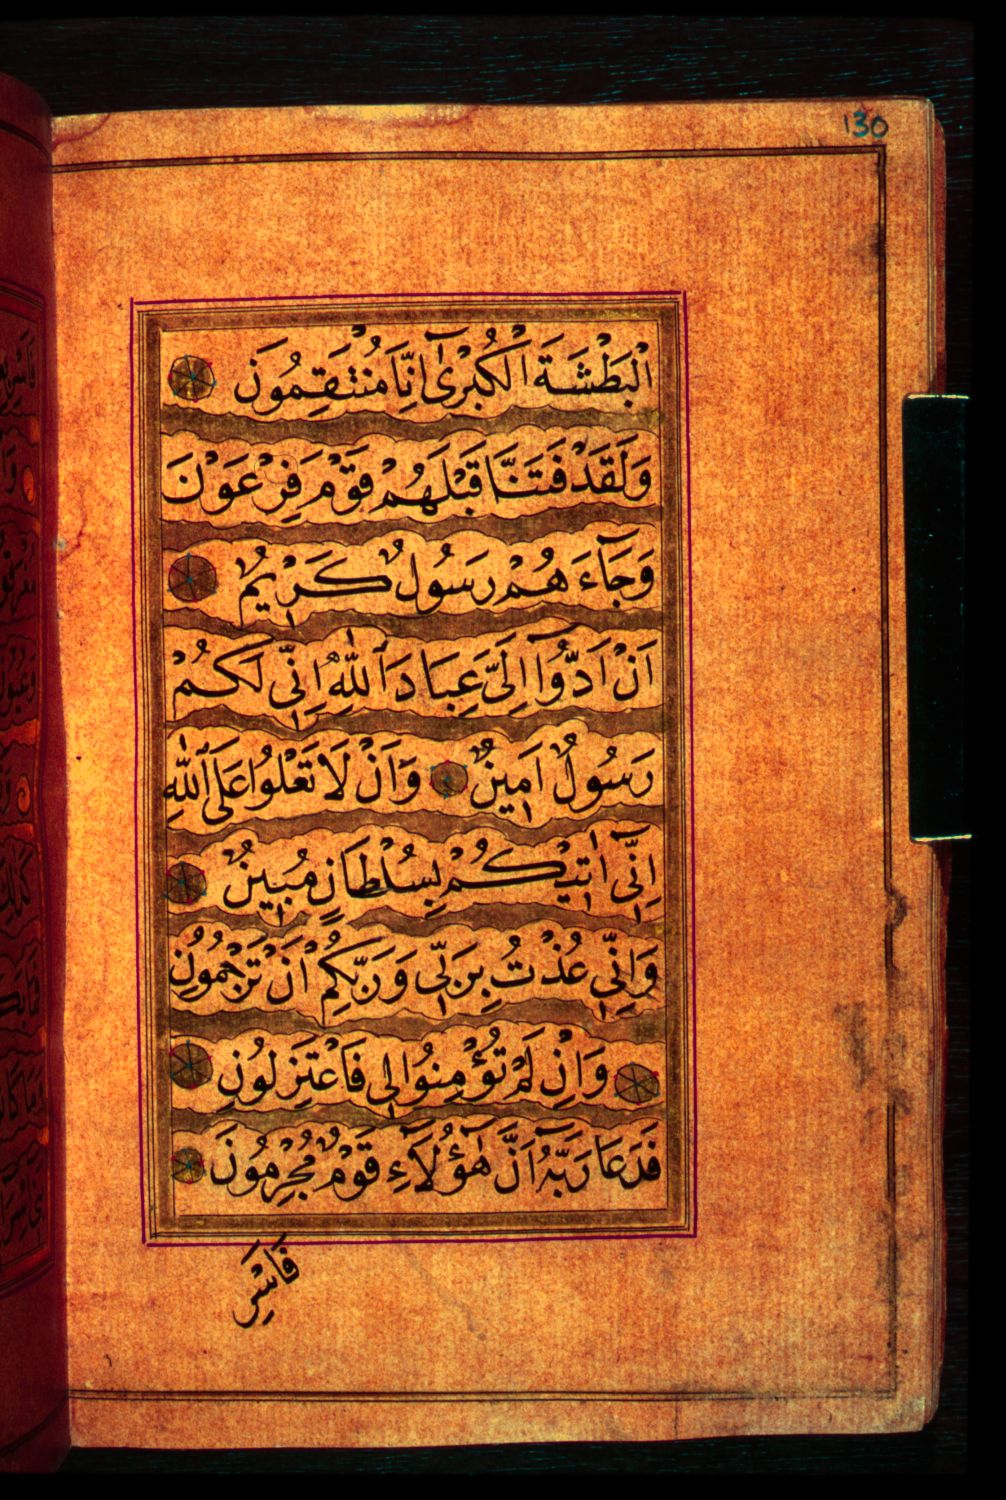 130
اْلبَطْشَةَ الْكُبْرىٰٓ اِنَّا مُنْتَقِمُونَ
وَلَقَدْ فَتَنَّا قَبْلَهُمْ قَوْمَ فِرْعَوْنَ
وَجَآءَ هُمْ رَسُولٌ كَرِيمٌ
اَنْ اَدُّوٓا اِلَىَّ عِبَادَ اللّٰهِ اِنِّى لَكُمْ
رَسُولٌ اَمِينٌ وَاَنْ لَا تَعْلُوا عَلَى اللّٰهِ
اِنِّىٓ اٰتِيكُمْ بِسُلْطَانٍ مُبِينٍ
وَاِنِّى عُذْتُ بِرَبِّى وَرَبِّكُمْ اَنْ تَرْجُمُونِ
وَاِنْ لَمْ تُؤْمِنُوا لِى فَاعْتَزِلُونِ
فَدَعَا رَبَّهُٓ اَنَّ هٰٓؤُلَآءِ قَوْمٌ مُجْرِمُونَ
فَاَسْرِ